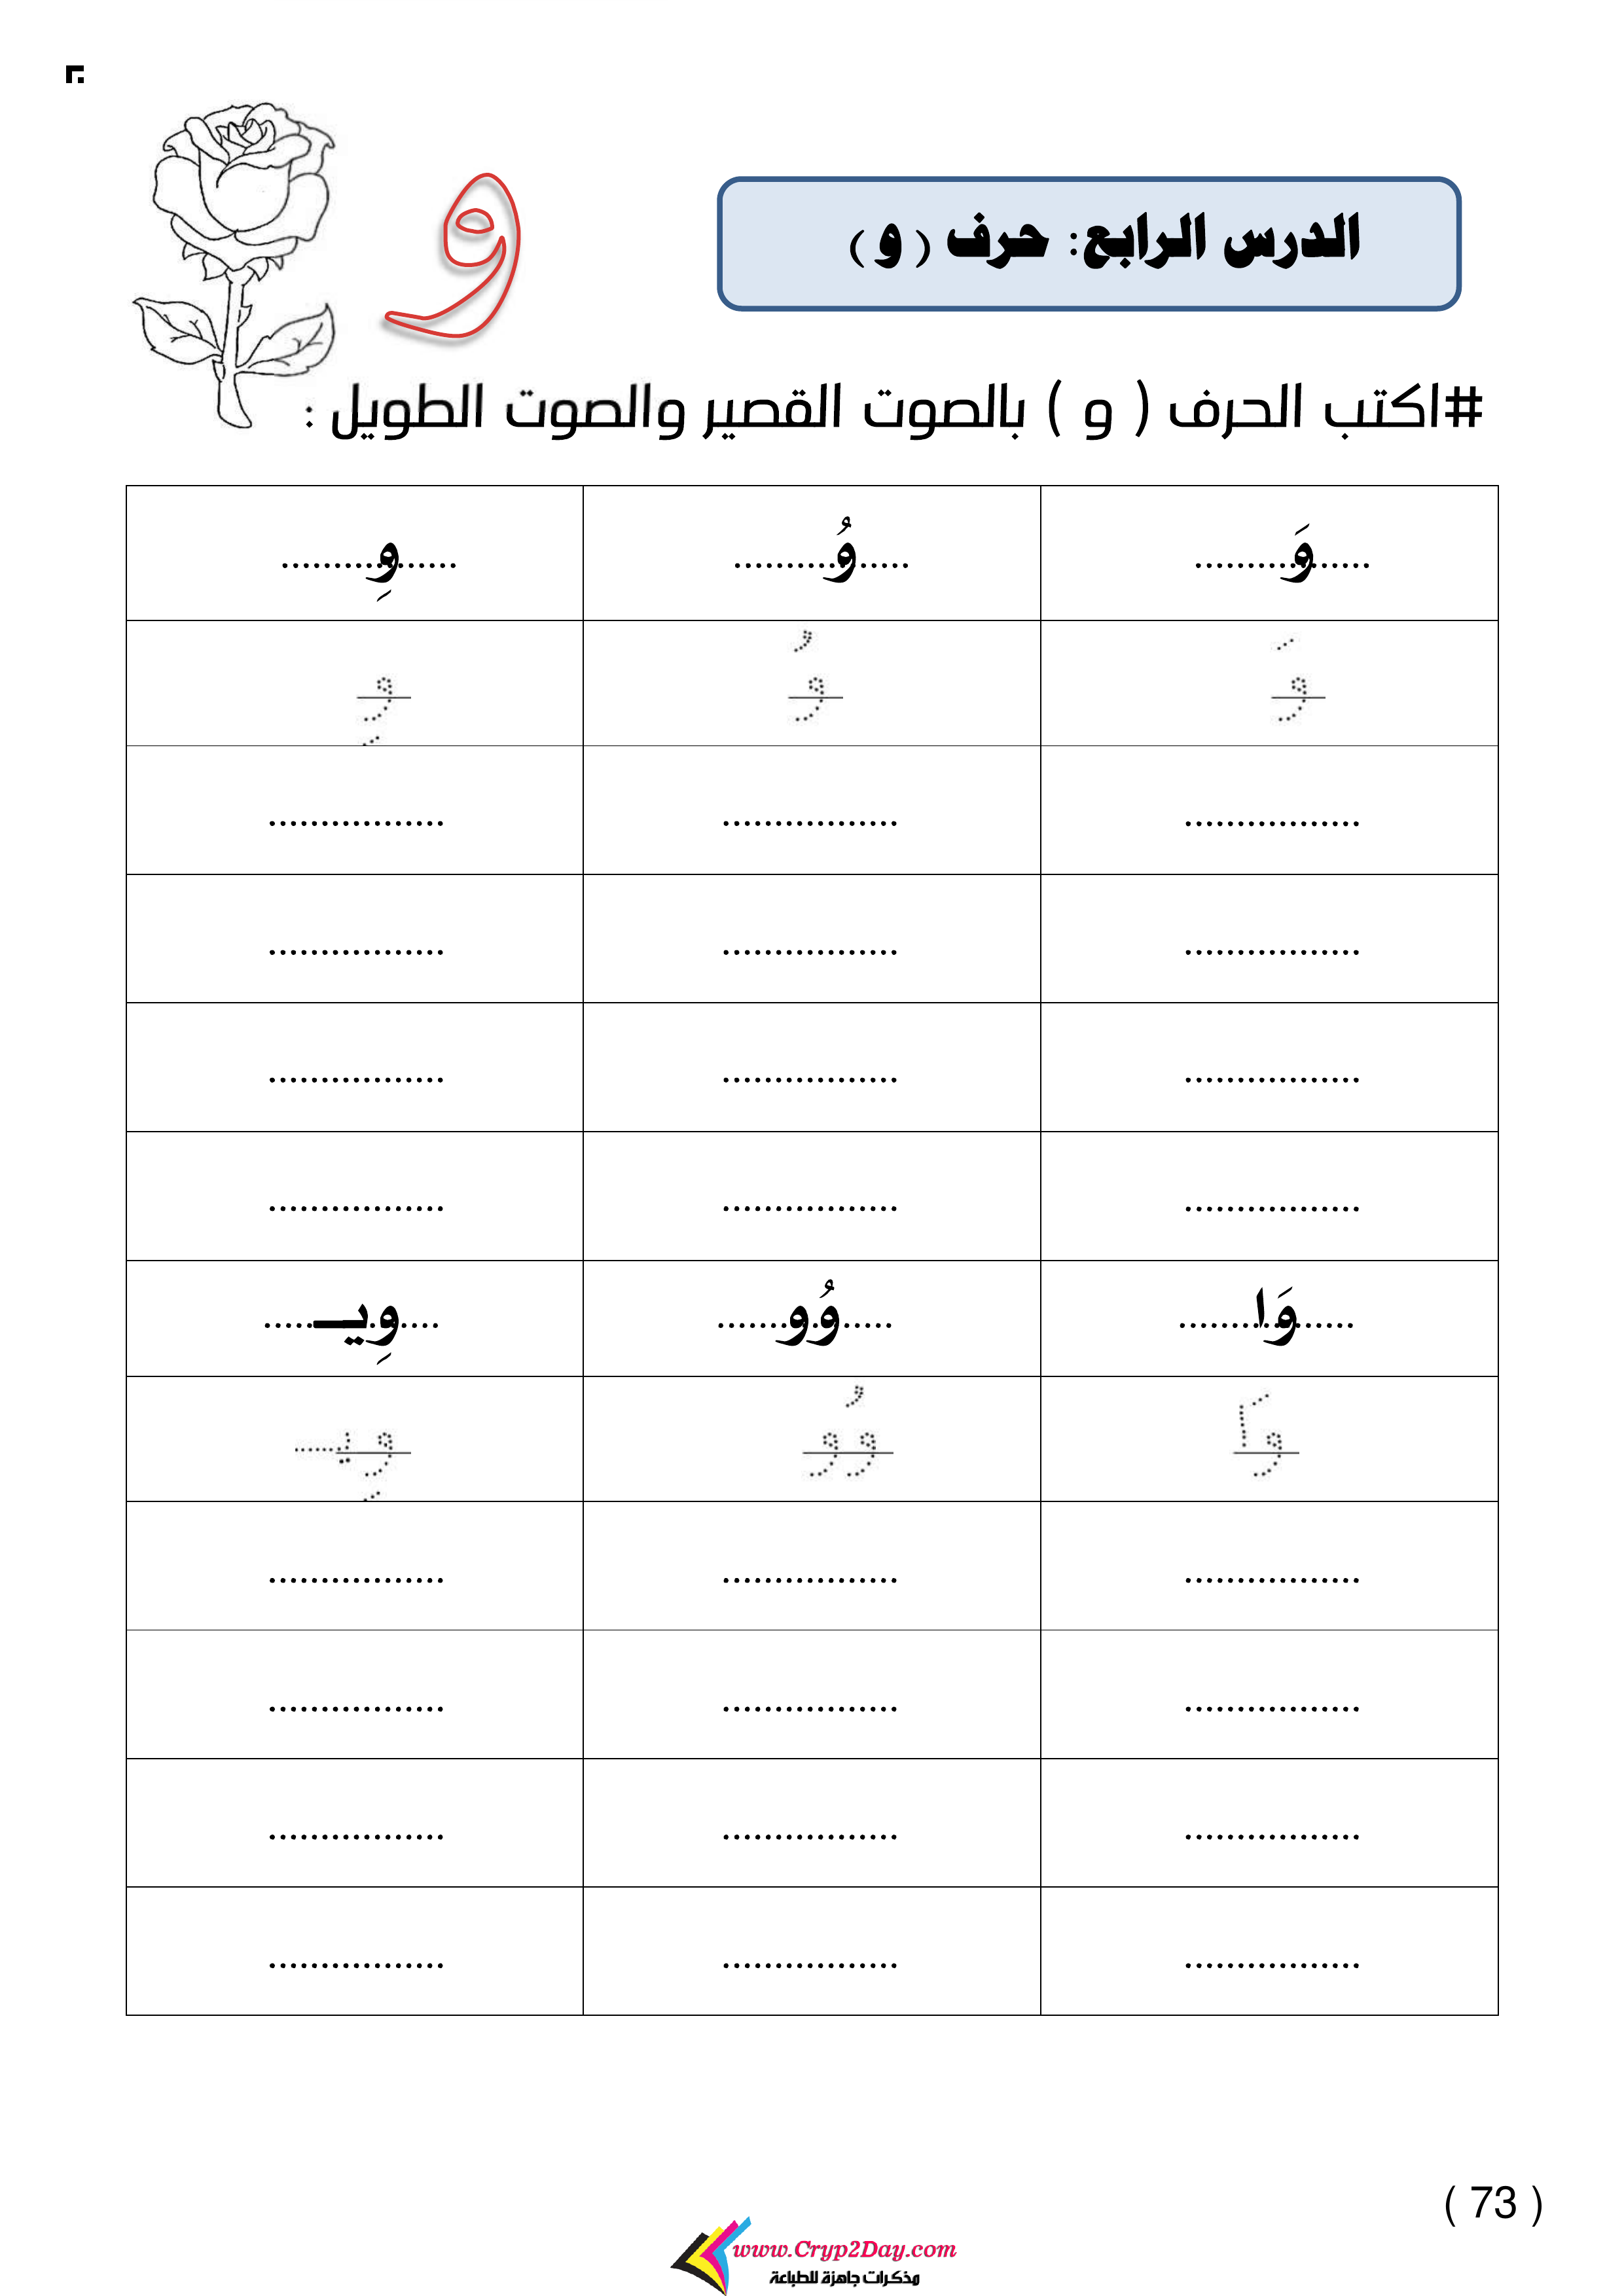 الدرس الرابع: حرف ( و )
و
#اكتب الحرف ( و ) بالصوت القصير والصوت الطويل :
وَ................ وُ................ وِ................
وَ وُ وِ
................ ................ ................
................ ................ ................
................ ................ ................
................ ................ ................
وَا................ وُو................ وِيـ................
وَا وُو وِيـ
................ ................ ................
................ ................ ................
................ ................ ................
................ ................ ................
( 73 )
www.Cryp2Day.com
مذكرات جاهزة للطباعة